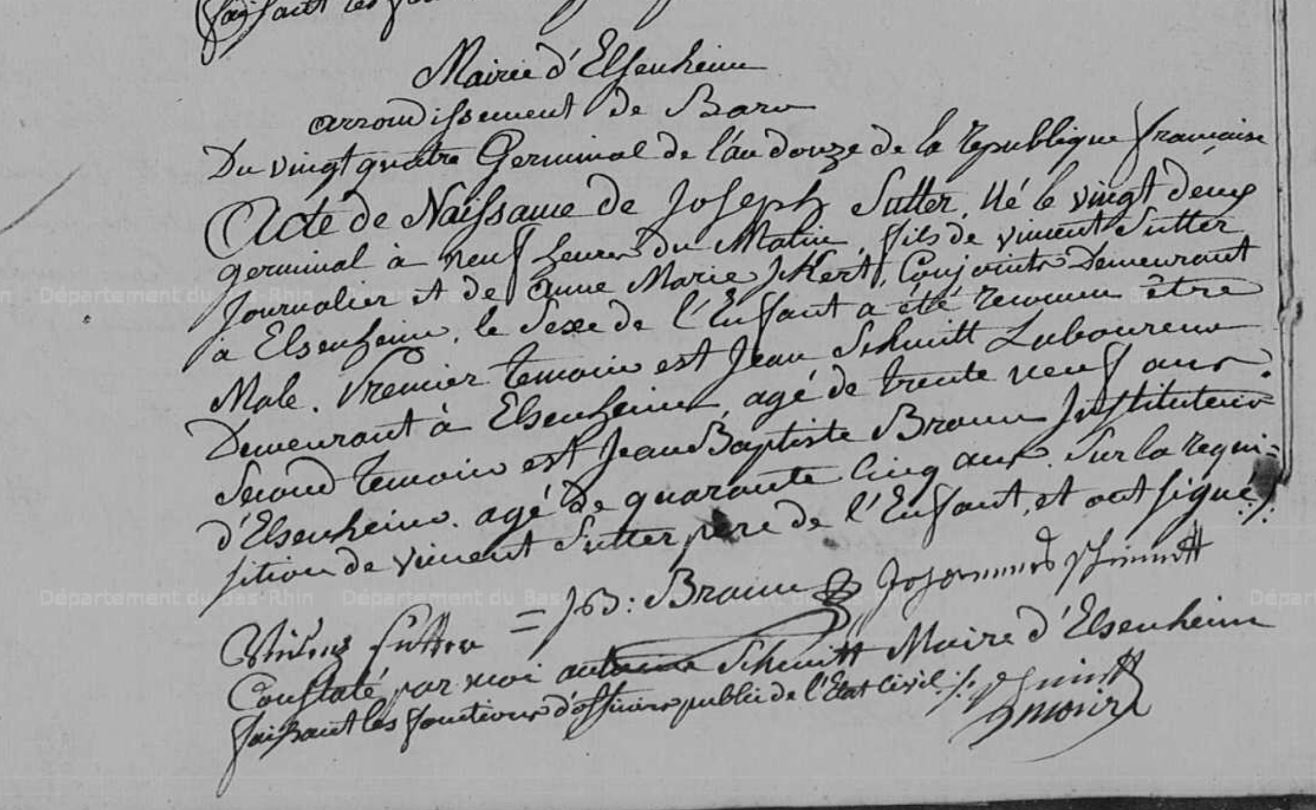 faisant les fon
Mairie d'Elsenheim
arrondissement de Barr
Du vingt quatre Germinal de l'an douze de la republique française
Acte de Naissance de Joseph Sutter, Né le vingt deux
germinal à neuf heures du Matin, fils de vincent Sutter
Journalier et de anne Marie Kert, Conjoints Demeurant
à Elsenheim, le Sexe de l'Enfant a été reconnu être
Male. Premier temoin est Jean Schmitt Laboureur
Demeurant à Elsenheim, agé de trente neuf ans.
Second temoin est Jean Baptiste Braun Instituteur
d'Elsenheim. agé de quarante Cinq ans. Sur la requi=
sition de vincent Sutter pere de l'Enfant, et ont signé ./.
= JB: Braun Johannes Schmitt
Vinzenz Sutter
Constaté par moi antoine Schmitt Maire d'Elsenheim
faisant les fonctions d'officier public de l'Etat Civil ./. Schmitt
maire
Département du Bas-Rhin
Département du Bas-Rhin
Département du Bas-Rhin
Département du Bas-Rhin